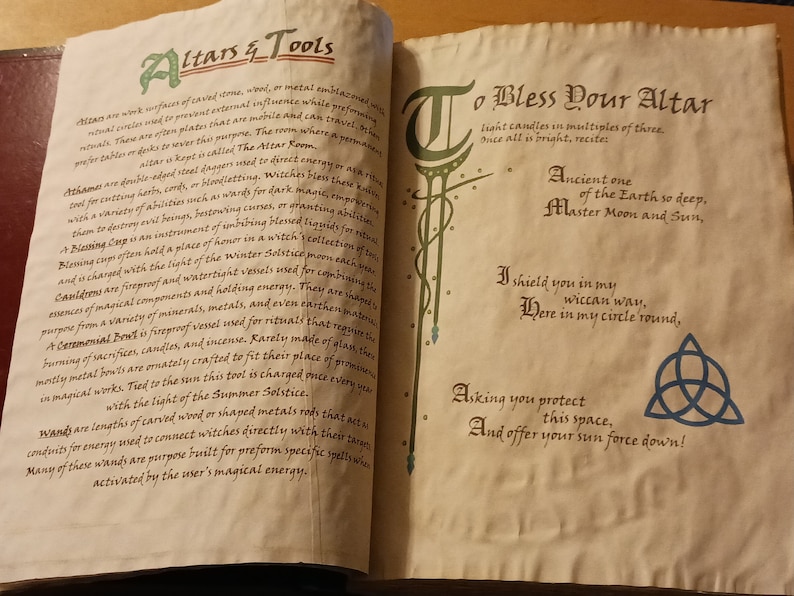 Altars & Tools
Altars are work surfaces of caved stone, wood, or metal emblazoned with
ritual circles used to prevent external influence while preforming
rituals. These are often plates that are mobile and can travel. Others
prefer tables or desks to sever this purpose. The room where a permanent
altar is kept is called The Altar Room.
Athames are double-edged steel daggers used to direct energy or as a ritual
tool for cutting herbs, cords, or bloodletting. Witches bless these knives
with a variety of abilities such as wards for dark magic, empowering
them to destroy evil beings, bestowing curses, or granting abilities.
A Blessing Cup is an instrument of imbibing blessed liquids for ritual.
Blessing cups often hold a place of honor in a witch's collection of tools
and is charged with the light of the Winter Solstice moon each year.
Cauldrons are fireproof and watertight vessels used for combining the
essences of magical components and holding energy. They are shaped to
purpose from a variety of minerals, metals, and even earthen materials.
A Ceremonial Bowl is fireproof vessel used for rituals that require the
burning of sacrifices, candles, and incense. Rarely made of glass, these
mostly metal bowls are ornately crafted to fit their place of prominence
in magical works. Tied to the sun this tool is charged once every year
with the light of the Summer Solstice.
Wands are lengths of carved wood or shaped metals rods that act as
conduits for energy used to connect witches directly with their targets.
Many of these wands are purpose built for preform specific spells when
activated by the user's magical energy.
To Bless Your Altar
light candles in multiples of three.
Once all is bright, recite:
Ancient one
of the Earth so deep,
Master Moon and Sun,
I shield you in my
wiccan way,
Here in my circle round,
Asking you protect
this space,
And offer your sun force down!